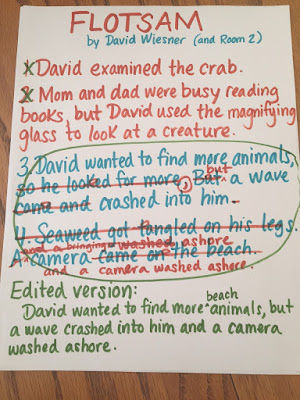 FLOTSAM
by David Wiesner (and Room 2)
X David examined the crab.
X Mom and dad were busy reading
books, but David used the magnifying
glass to look at a creature.
3. David wanted to find more animals,
so he looked for more, But but a wave
came and crashed into him.
4. Seaweed got tangled on his legs.
and bringing washed ashore
A camera came on the beach.
and a camera washed ashore.
Edited version:
beach
David wanted to find more ^ animals, but
a wave crashed into him and a camera
washed ashore.